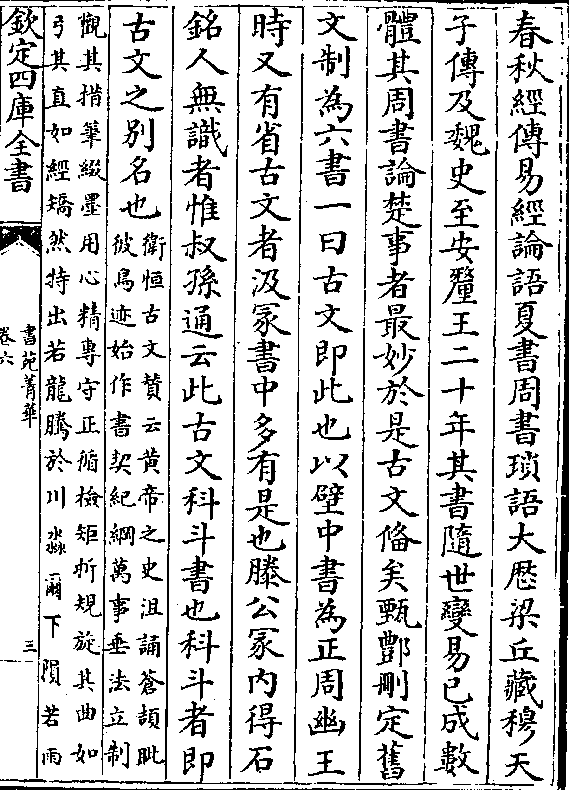 春秋經傳易經論語夏書周書瑣語大厯梁丘藏穆天
子傳及魏史至安釐王二十年其書隨世變易已成數
體其周書論楚事者最妙於是古文備矣甄酆刪定舊
文制為六書一曰古文即此也以壁中書為正周幽王
時又有省古文者汲冢書中多有是也滕公冢内得石
銘人無識者惟叔孫通云此古文科斗書也科斗者即
古文之别名也
衛恒古文賛云黄帝之史沮誦蒼頡眺
彼鳥迹始作書契紀綱萬事垂法立制
觀其措筆綴墨用心精專守正循檢矩折規旋其曲如
弓其直如經矯然特出若龍騰於川淼爾下隕若雨
欽定四庫全書
書苑菁華
卷六
三